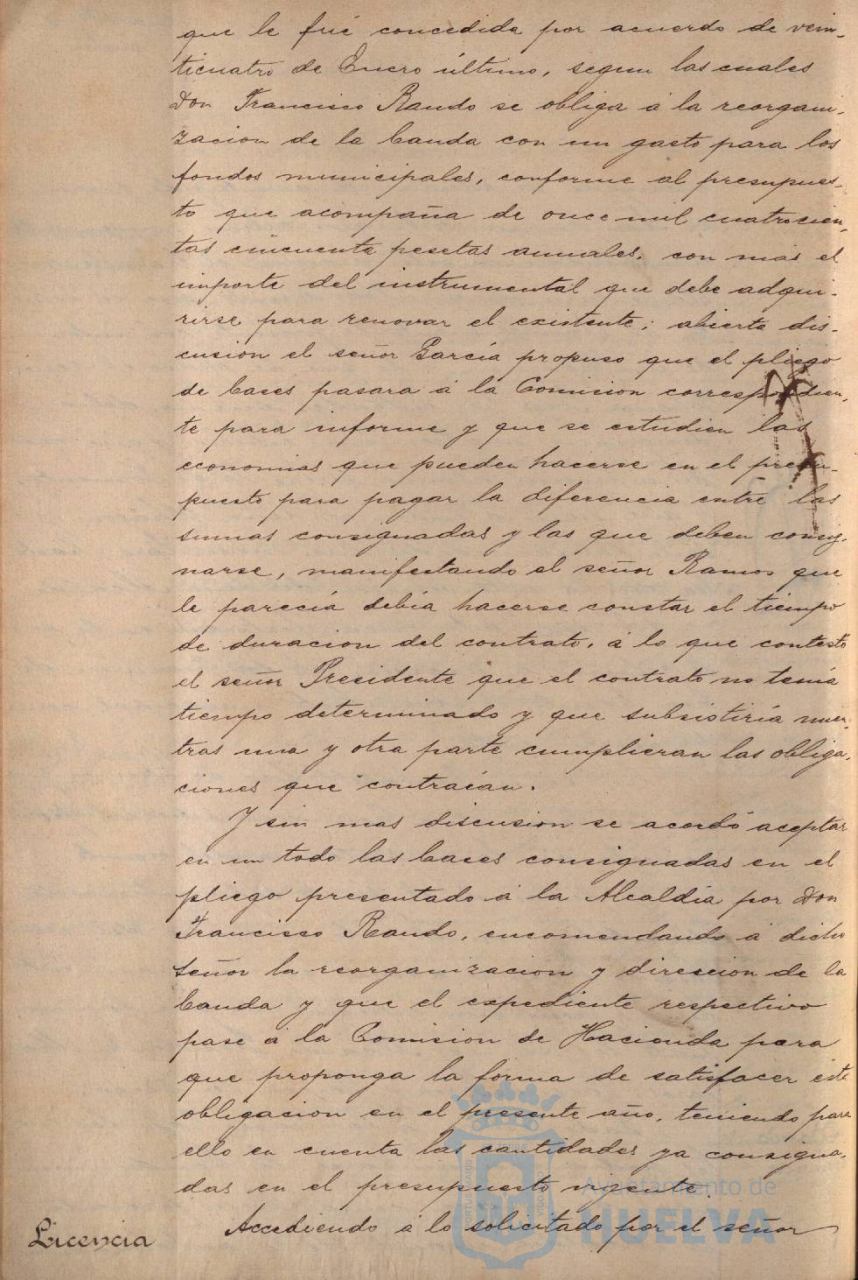 que le fué concedida por acuerdo de vein-
ticuatro de Enero último, segun las cuales
Don Francisco Rando se obliga á la reorgani-
zacion de la banda con un gasto para los
fondos municipales, conforme al presupues-
to que acompaña de once mil cuatrocien-
tas cincuenta pesetas annuales, con mas el
importe del instrumental que debe adqui-
rirse para renovar el existente; abierta dis-
cusion el señor García propuso que el pliego
de bases pasara á la Comision correspondien-
te para informe y que se estudien las
economias que pueden hacerse en el presu-
puesto para pagar la diferencia entre las
sumas consignadas y las que deben consig-
narse, manifestando el señor Ramos que
le parecía debía hacerse constar el tiempo
de duracion del contrato, á lo que contestó
el señor Presidente que el contrato no tenía
tiempo determinado y que subsistiría mien-
tras una y otra parte cumplieran las obliga-
ciones que contraían.
Y sin mas discusion se acordó aceptar
en un todo las bases consignadas en el
pliego presentado á la Alcaldía por Don
Francisco Rando, encomendando á dicho
señor la reorganizacion y direccion de la
banda y que el expediente respectivo
pase á la Comision de Hacienda para
que proponga la forma de satisfacer esta
obligacion en el presente año, teniendo para
ello en cuenta las cantidades ya consigna-
das en el presupuesto vigente.
Licencia Accediendo á lo solicitado por el señor
Ayuntamiento de
HUELVA